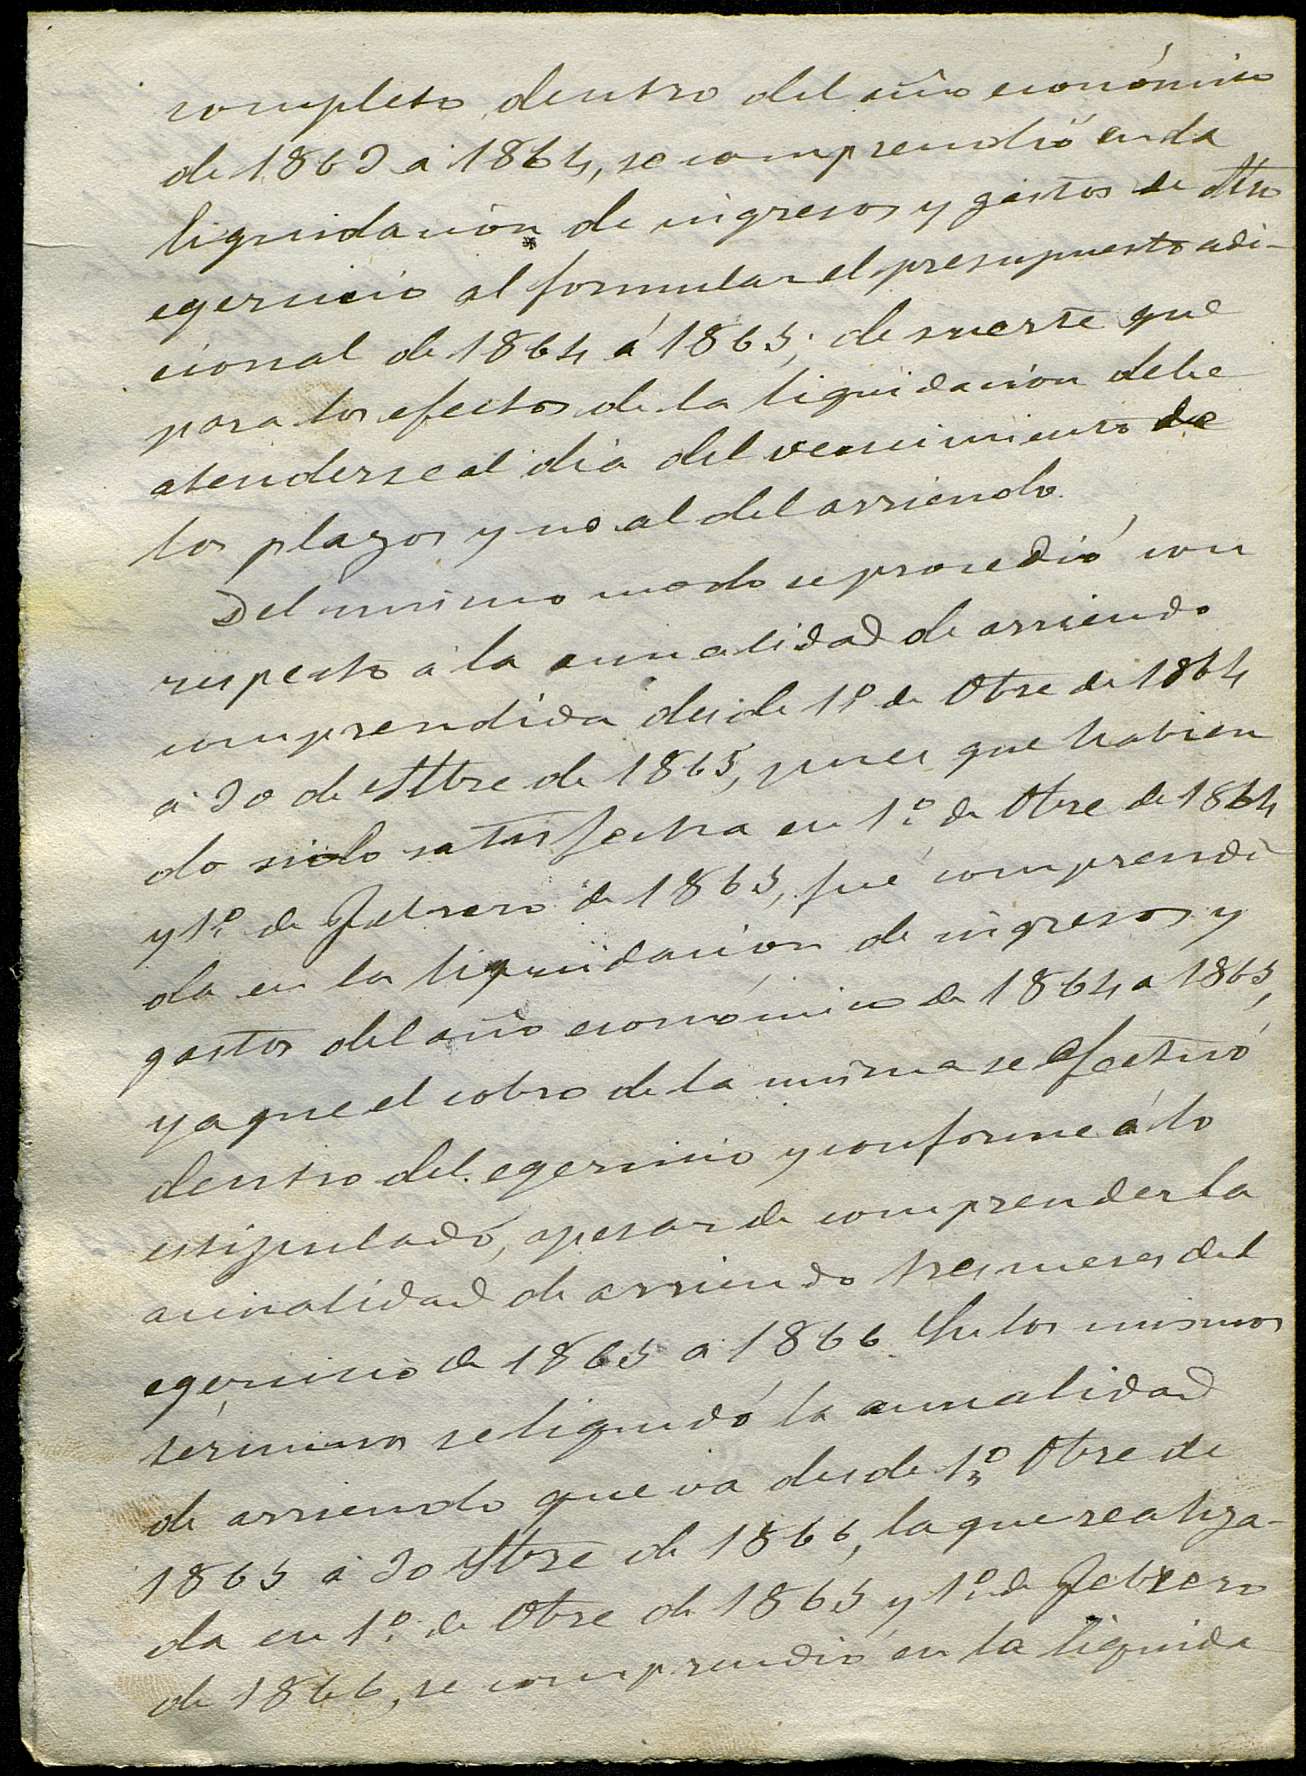 completo, dentro del año económico
de 1863 a 1864, se comprendió en la
liquidación de ingresos y gastos de dho
egercicio al formular el presupuesto adi-
cional de 1864 á 1865; de suerte que
para los efectos de la liquidacion debe
atenderse al dia del vencimiento de
los plazos y no al del arriendo.
Del mismo modo se procedió con
respecto á la anualidad de arriendo
comprendida desde 1º de Obre de 1864
á 30 de Stbre de 1865, pues que habien
do sido satisfecha en 1º de Obre de 1864
y 1º de Febrero de 1865, fué comprendi
da en la liquidacion de ingresos y
gastos del año económico de 1864 a 1865,
ya que el cobro de la misma se efectuó
dentro del egercicio y conforme á lo
estipulado, apesar de comprender la
anualidad de arriendo tres meses del
egercicio de 1865 a 1866. En los mismos
términos se liquidó la anualidad
de arriendo que va desde 1º Obre de
1865 a 30 Stbre de 1866, la que realiza-
da en 1º de Obre de 1865 y 1º de Febrero
de 1866, se comprendió en la liquida